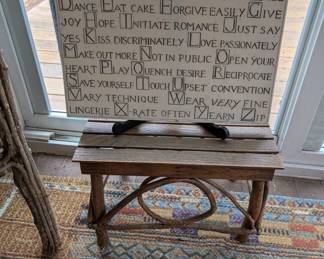 DANCE EAT CAKE FORGIVE EASILY GIVE
JOY HOPE INITIATE ROMANCE JUST SAY
YES KISS DISCRIMINATELY LOVE PASSIONATELY
MAKE OUT MORE NOT IN PUBLIC OPEN YOUR
HEART PLAY QUENCH DESIRE RECIPROCATE
SAVE YOURSELF TOUCH UPSET CONVENTION
VARY TECHNIQUE WEAR VERY FINE
LINGERIE X-RATE OFTEN YEARN ZIP